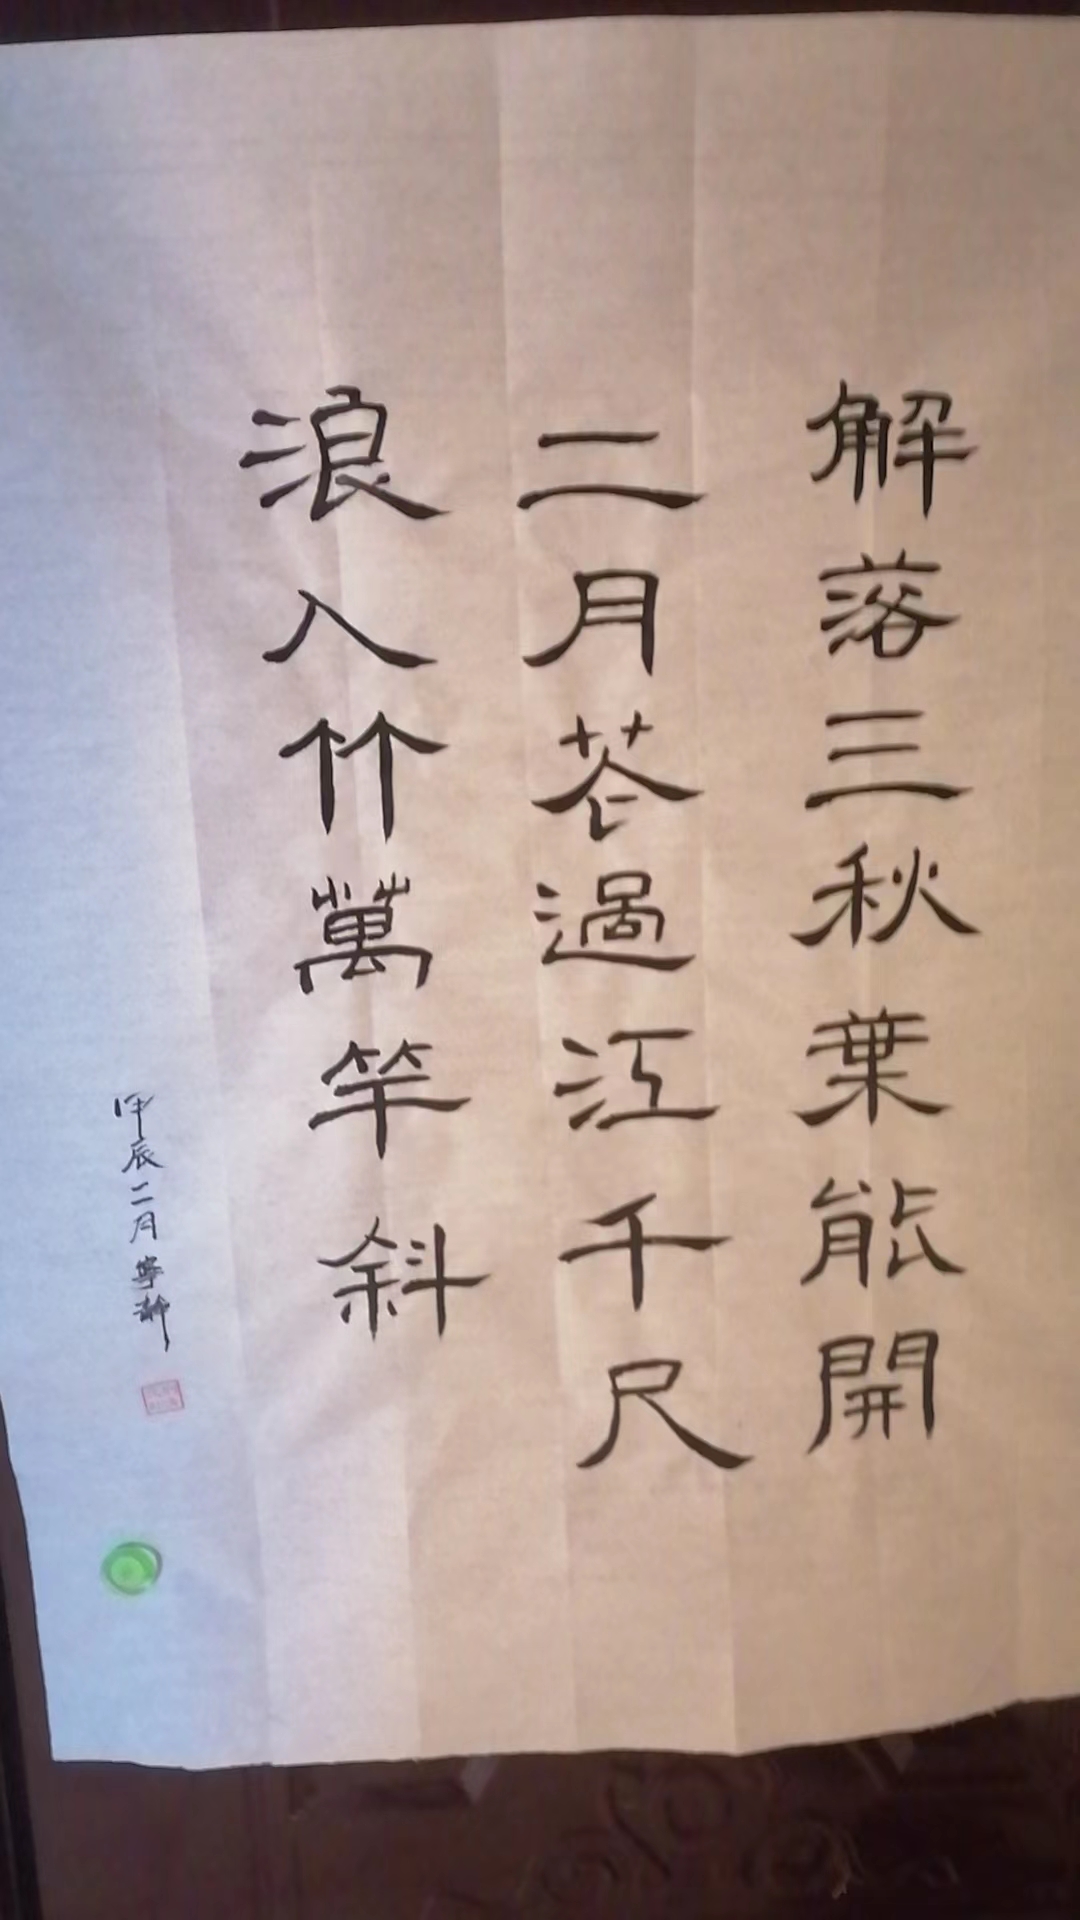 解落三秋葉能開
二月苍過江千尺
浪入竹萬竿斜
甲辰二月寧静